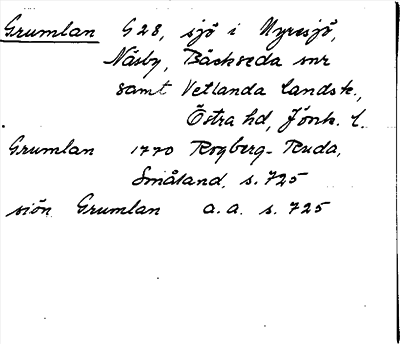 Grumlan G28, sjö i Nyresjö,
Näsby, Bäckseda snr
samt Vetlanda landsk.,
Östra hd, Jönk. l.
Grumlan 1770 Rogberg-Ruda,
Småland, s. 725
siön Grumlan a.a. s. 725